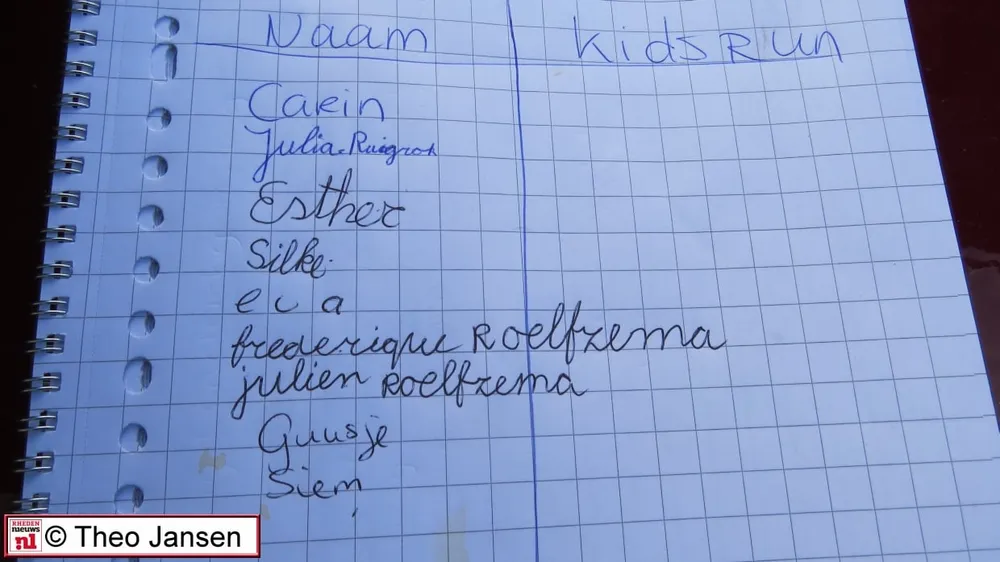 Naam Kids Run
Carin
Julia Ruigrok
Esther
Silke
eva
frederique Roelfzema
julien Roelfzema
Guusje
Siem
RHEDEN
nieuws
.nl
© Theo Jansen